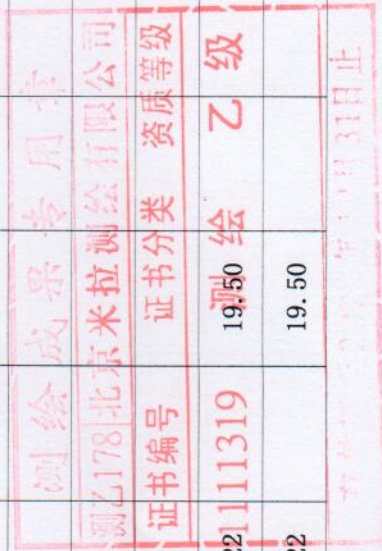 测绘成果专用章
测乙178 北京米拉测绘有限公司
证书编号 证书分类 资质等级
11111319 测绘 乙级
22 19.50
22 19.50
31日止